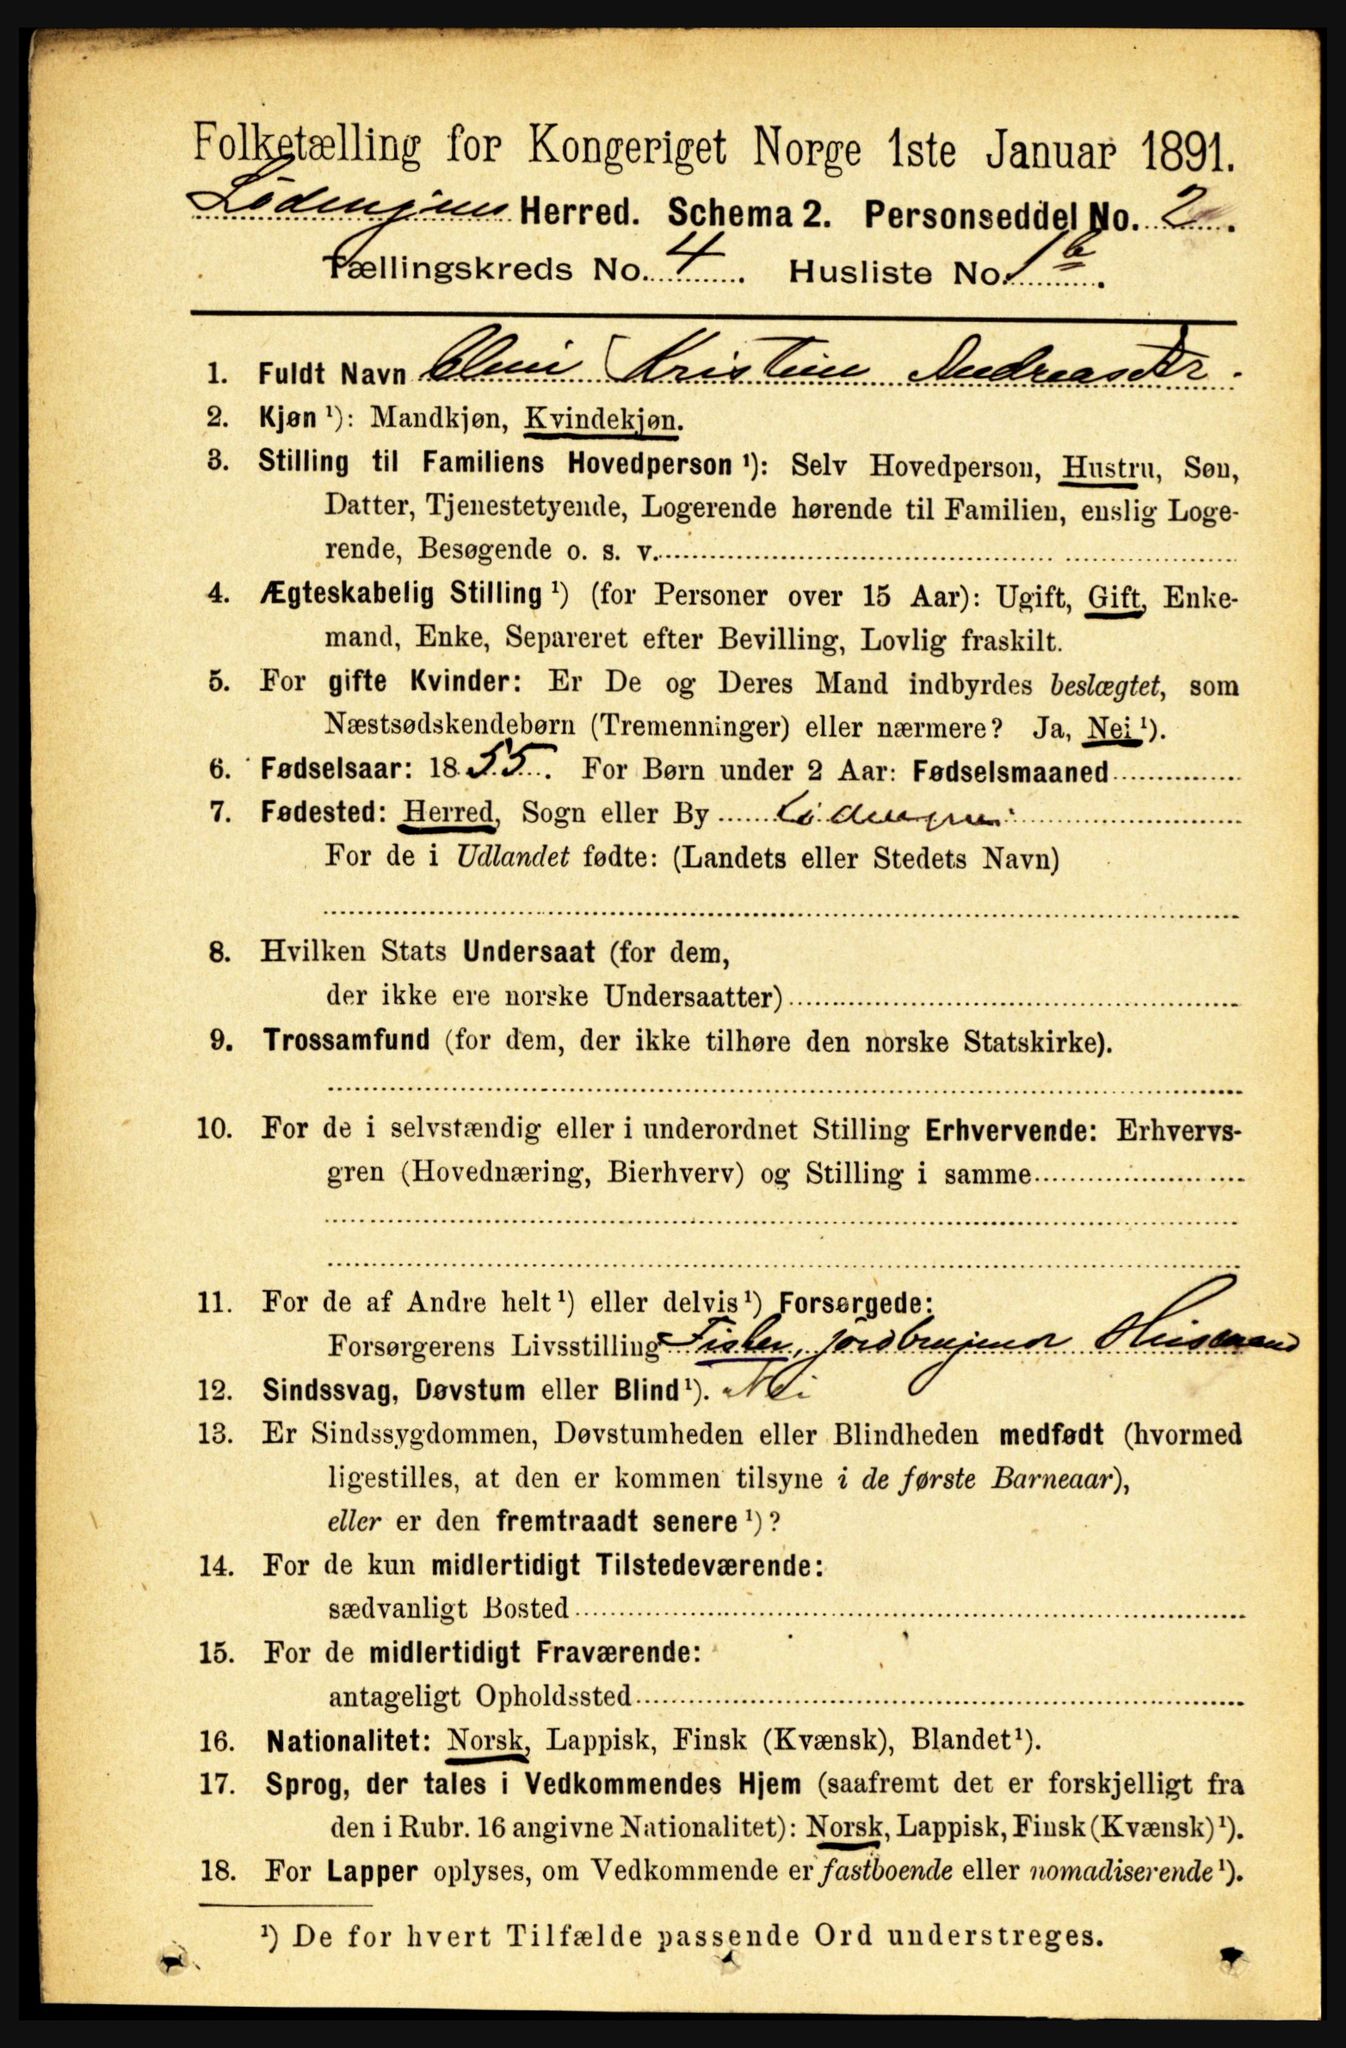 Folketælling for Kongeriget Norge 1ste Januar 1891.
Lødingens Herred. Schema 2. Personseddel No. 2.
Tællingskreds No. 4. Husliste No. 1b.
1. Fuldt Navn Oline Kristine Andreasdtr
2. Kjøn ¹): Mandkjøn, Kvindekjøn.
3. Stilling til Familiens Hovedperson ¹): Selv Hovedperson, Hustru, Søn,
Datter, Tjenestetyende, Logerende hørende til Familien, enslig Loge-
rende, Besøgende o. s. v.
4. Ægteskabelig Stilling ¹) (for Personer over 15 Aar): Ugift, Gift, Enke-
mand, Enke, Separeret efter Bevilling, Lovlig fraskilt.
5. For gifte Kvinder: Er De og Deres Mand indbyrdes beslægtet, som
Næstsødskendebørn (Tremenninger) eller nærmere? Ja, Nei ¹).
6. Fødselsaar: 1855. For Børn under 2 Aar: Fødselsmaaned
7. Fødested: Herred, Sogn eller By Lødingen
For de i Udlandet fødte: (Landets eller Stedets Navn)
8. Hvilken Stats Undersaat (for dem,
der ikke ere norske Undersaatter)
9. Trossamfund (for dem, der ikke tilhøre den norske Statskirke).
10. For de i selvstændig eller i underordnet Stilling Erhvervende: Erhvervs-
gren (Hovednæring, Bierhverv) og Stilling i samme
11. For de af Andre helt ¹) eller delvis ¹) Forsørgede:
Forsørgerens Livsstilling Fisker, jordbrugende Husmand
12. Sindssvag, Døvstum eller Blind ¹). Nei
13. Er Sindssygdommen, Døvstumheden eller Blindheden medfødt (hvormed
ligestilles, at den er kommen tilsyne i de første Barneaar),
eller er den fremtraadt senere ¹)?
14. For de kun midlertidigt Tilstedeværende:
sædvanligt Bosted
15. For de midlertidigt Fraværende:
antageligt Opholdssted
16. Nationalitet: Norsk, Lappisk, Finsk (Kvænsk), Blandet ¹).
17. Sprog, der tales i Vedkommendes Hjem (saafremt det er forskjelligt fra
den i Rubr. 16 angivne Nationalitet): Norsk, Lappisk, Finsk (Kvænsk) ¹).
18. For Lapper oplyses, om Vedkommende er fastboende eller nomadiserende ¹).
¹) De for hvert Tilfælde passende Ord understreges.